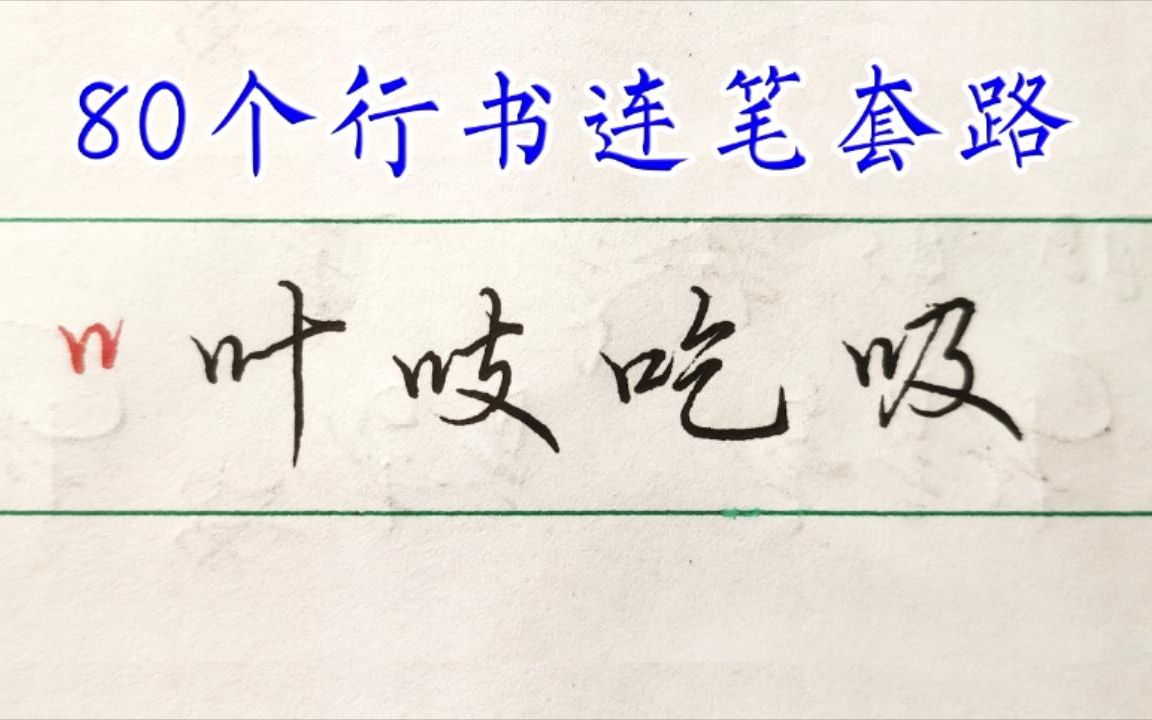 80个行书连笔套路
口 叶 吱 吃 吸